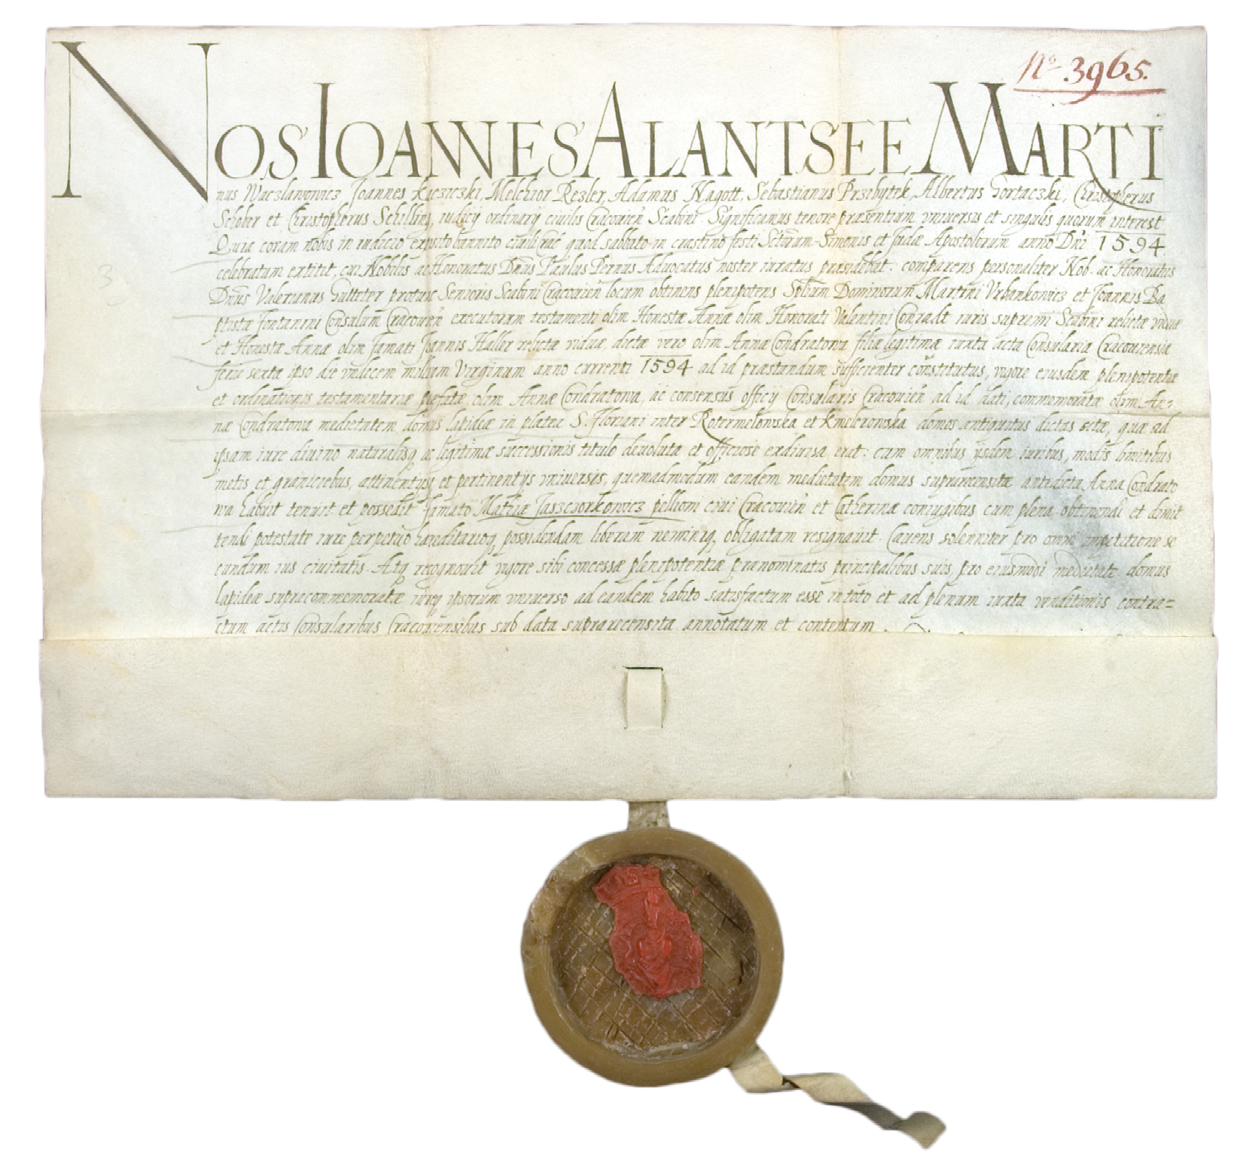 No 3965.
NOS IOANNES ALANTSEE MARTI
nus Waczlawowicz Joannes Kusiczki, Melchior Rezler, Adamus Nagott, Sebastianus Przibytek, Albertus Gortaczki, Christopherus
Scheber et Christopherus Schilling, iudicÿ ordinarÿ civilis Cracovien̄ Scabini Significamus tenore præsentium vniversis et singulis quorum interest
Quia coram nobis in iudicio exposito bannito civili rāe quod sabbato in crastino festi Sctorum Simonis et Judæ Apostolorum anno Dni 1594
celebratum extitit, cui Nobilis ac Honoratus Dnus Paulus Pernus Advocatus noster iuratus præsidebat. comparens personaliter Nob. ac Honoratus
Dnus Valerianus Gutteter protunc Senioris Scabini Cracovien̄ locum obtinens plenipotens Spblium Dominorum Martini Vrbankowicz et Joannis Ba
ptistæ Fontanini Consulum Cracovien̄ executorum testamenti olim Honestæ Annæ olim Honorati Valentini Conradt iuris supremi Scabini relictæ viduæ
et Honestæ Annæ olim famati Joannis Haller relictæ viduæ dictæ vero olim Annæ Condratowa filiæ legitimæ iuxta acta Consularia Cracoviensia
feria sexta ipso die vndecem millium Virginum anno currenti 1594 ad id præstandum sufficienter constitutus, vigore eiusdem plenipotentiæ
et ordinationis testamentariæ præfatæ olim Annæ Condratowa, ac consensus officÿ Consularis Cracovien̄ ad id dati, commemoratæ olim An=
næ Condratowa medietatem domus lapideæ in platea S. Floriani inter Rotermelowska et Kmelerowska domos antiquitus dictas sitæ, quæ ad
ipsam iure divino naturaliq₃ ac legitimæ successionis titulo devoluta et officiose exdivisa erat: cum omnibus ÿsdem iuribus, modis limitibus
metis et granicÿebus, attinentÿs et pertinentÿs vniversis, quemadmodum eandem medietatem domus suprarecensitæ antidicta Anna Condrato
wa habuit tenuit et possedit famato Mathiæ Jaszczorkowicz pellioni civi Cracovien̄ et Catherinæ coniugibus cum plena obtinendi et dimit
tendi potestate iure perpetuo hæreditarioq₃ possidendam liberam neminiq₃ obligatam resignavit. Cavens solenniter pro omni impetitione se
cundum ius civitatis. Atq₃ recognovit vigore sibi concessæ plenipotentiæ prænominatis principalibus suis pro eiusmodi medietate domus
lapideæ supracommemoratæ iuriq₃ ipsorum vniverso ad eandem habito satisfactum esse in toto et ad plenum iuxta venditionis contra=
ctum actis Consularibus Cracoviensibus sub data suprarecensita annotatum et contentum.